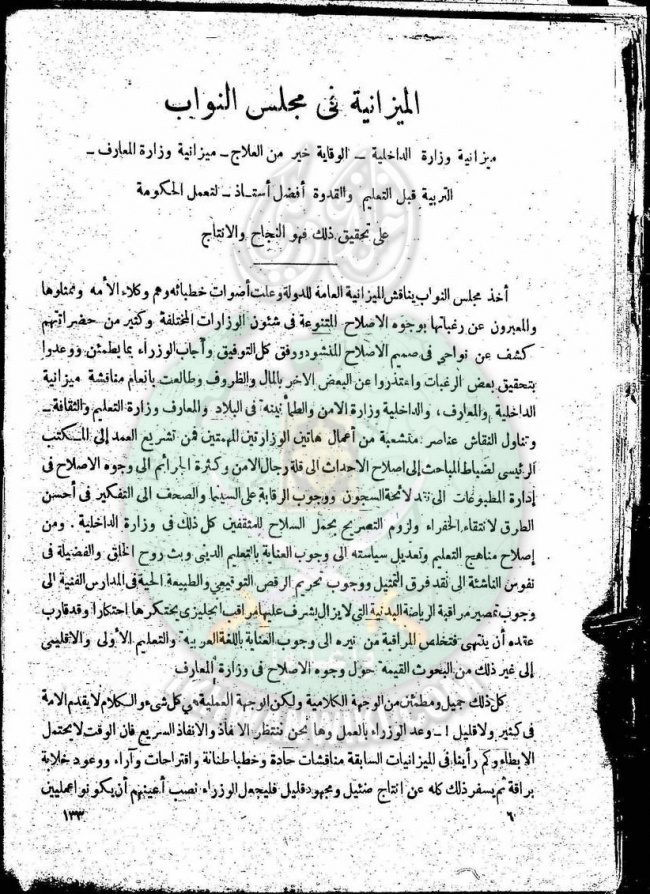 الميزانية فى مجلس النواب
ميزانية وزارة الداخلية – الوقاية خير من العلاج – ميزانية وزارة المعارف –
التربية قبل التعليم والقدوة أفضل أستاذ – لتعمل الحكومة
على تحقيق ذلك فهو النجاح والانتاج
أخذ مجلس النواب يناقش الميزانية العامة للدولة وعلت أصوات خطبائه وهم وكلاء الأمه وممثلوها
والمعبرون عن رغباتها بوجوه الاصلاح المتنوعة فى شئون الوزارات المختلفة وكثير من حضراتهم
كشف عن نواحى فى صميم الاصلاح المنشود ووفق كل التوفيق وأجاب الوزراء بما يطمئن ووعدوا
بتحقيق بعض الرغبات واعتذروا عن البعض الاخر بالمال والظروف وطالعت بانعام مناقشة ميزانية
الداخلية والمعارف، والداخلية وزارة الامن والطمأنينه فى البلاد والمعارف وزارة التعليم والثقافة –
وتناول النقاش عناصر متشعبة من أعمال هاتين الوزارتين المهمتين فمن تشريع العمد إلى المكتب
الرئيسى لضباط المباحث إلى إصلاح الاحداث الى قلة رجال الامن وكثرة الجرائم الى وجوه الاصلاح فى
إدارة المطبوعات الى نقد لائحة السجون ووجوب الرقابة على السينما والصحف الى التفكير فى أحسن
الطرق لانتقاء الخفراء ولزوم التصريح بحمل السلاح للمثقفين كل ذلك فى وزارة الداخلية . ومن
إصلاح مناهج التعليم وتعديل سياسته الى وجوب العناية بالتعليم الدينى وبث روح الخلق والفضيلة فى
نفوس الناشئة الى نقد فرق التمثيل ووجوب تحريم الرقص التوقيعى والطبيعة الحية فى المدارس الفنية الى
وجوب تمصير مراقبة الرياضة البدنية التى لا يزال يشرف عليها مراقب انجليزى يحتكرها احتكارا وقد قارب
عقده أن ينتهى فتخلص المراقبة من نيره الى وجوب العناية باللغة العربيه والتعليم الأولى والاقليمى
إلى غير ذلك من البحوث القيمة حول وجوه الاصلاح فى وزارة المعارف
كل ذلك جميل ومطمئن من الوجهة الكلامية ولكن الوجهة العملية هى كل شىء والكلام لا يقدم الامة
فى كثير ولا قليل ! – وعد الوزراء بالعمل وها نحن ننتظر الانفاذ والانفاذ السريع فان الوقت لا يحتمل
الابطاء وكم رأينا فى الميزانيات السابقة مناقشات حادة وخطبا طنانة واقتراحات وآراء ووعود خلابة
براقة ثم يسفر ذلك كله عن انتاج ضئيل ومجهود قليل فليجعل الوزراء نصب أعينهم أن يكونوا عمليين
٦٠ ١٣٣